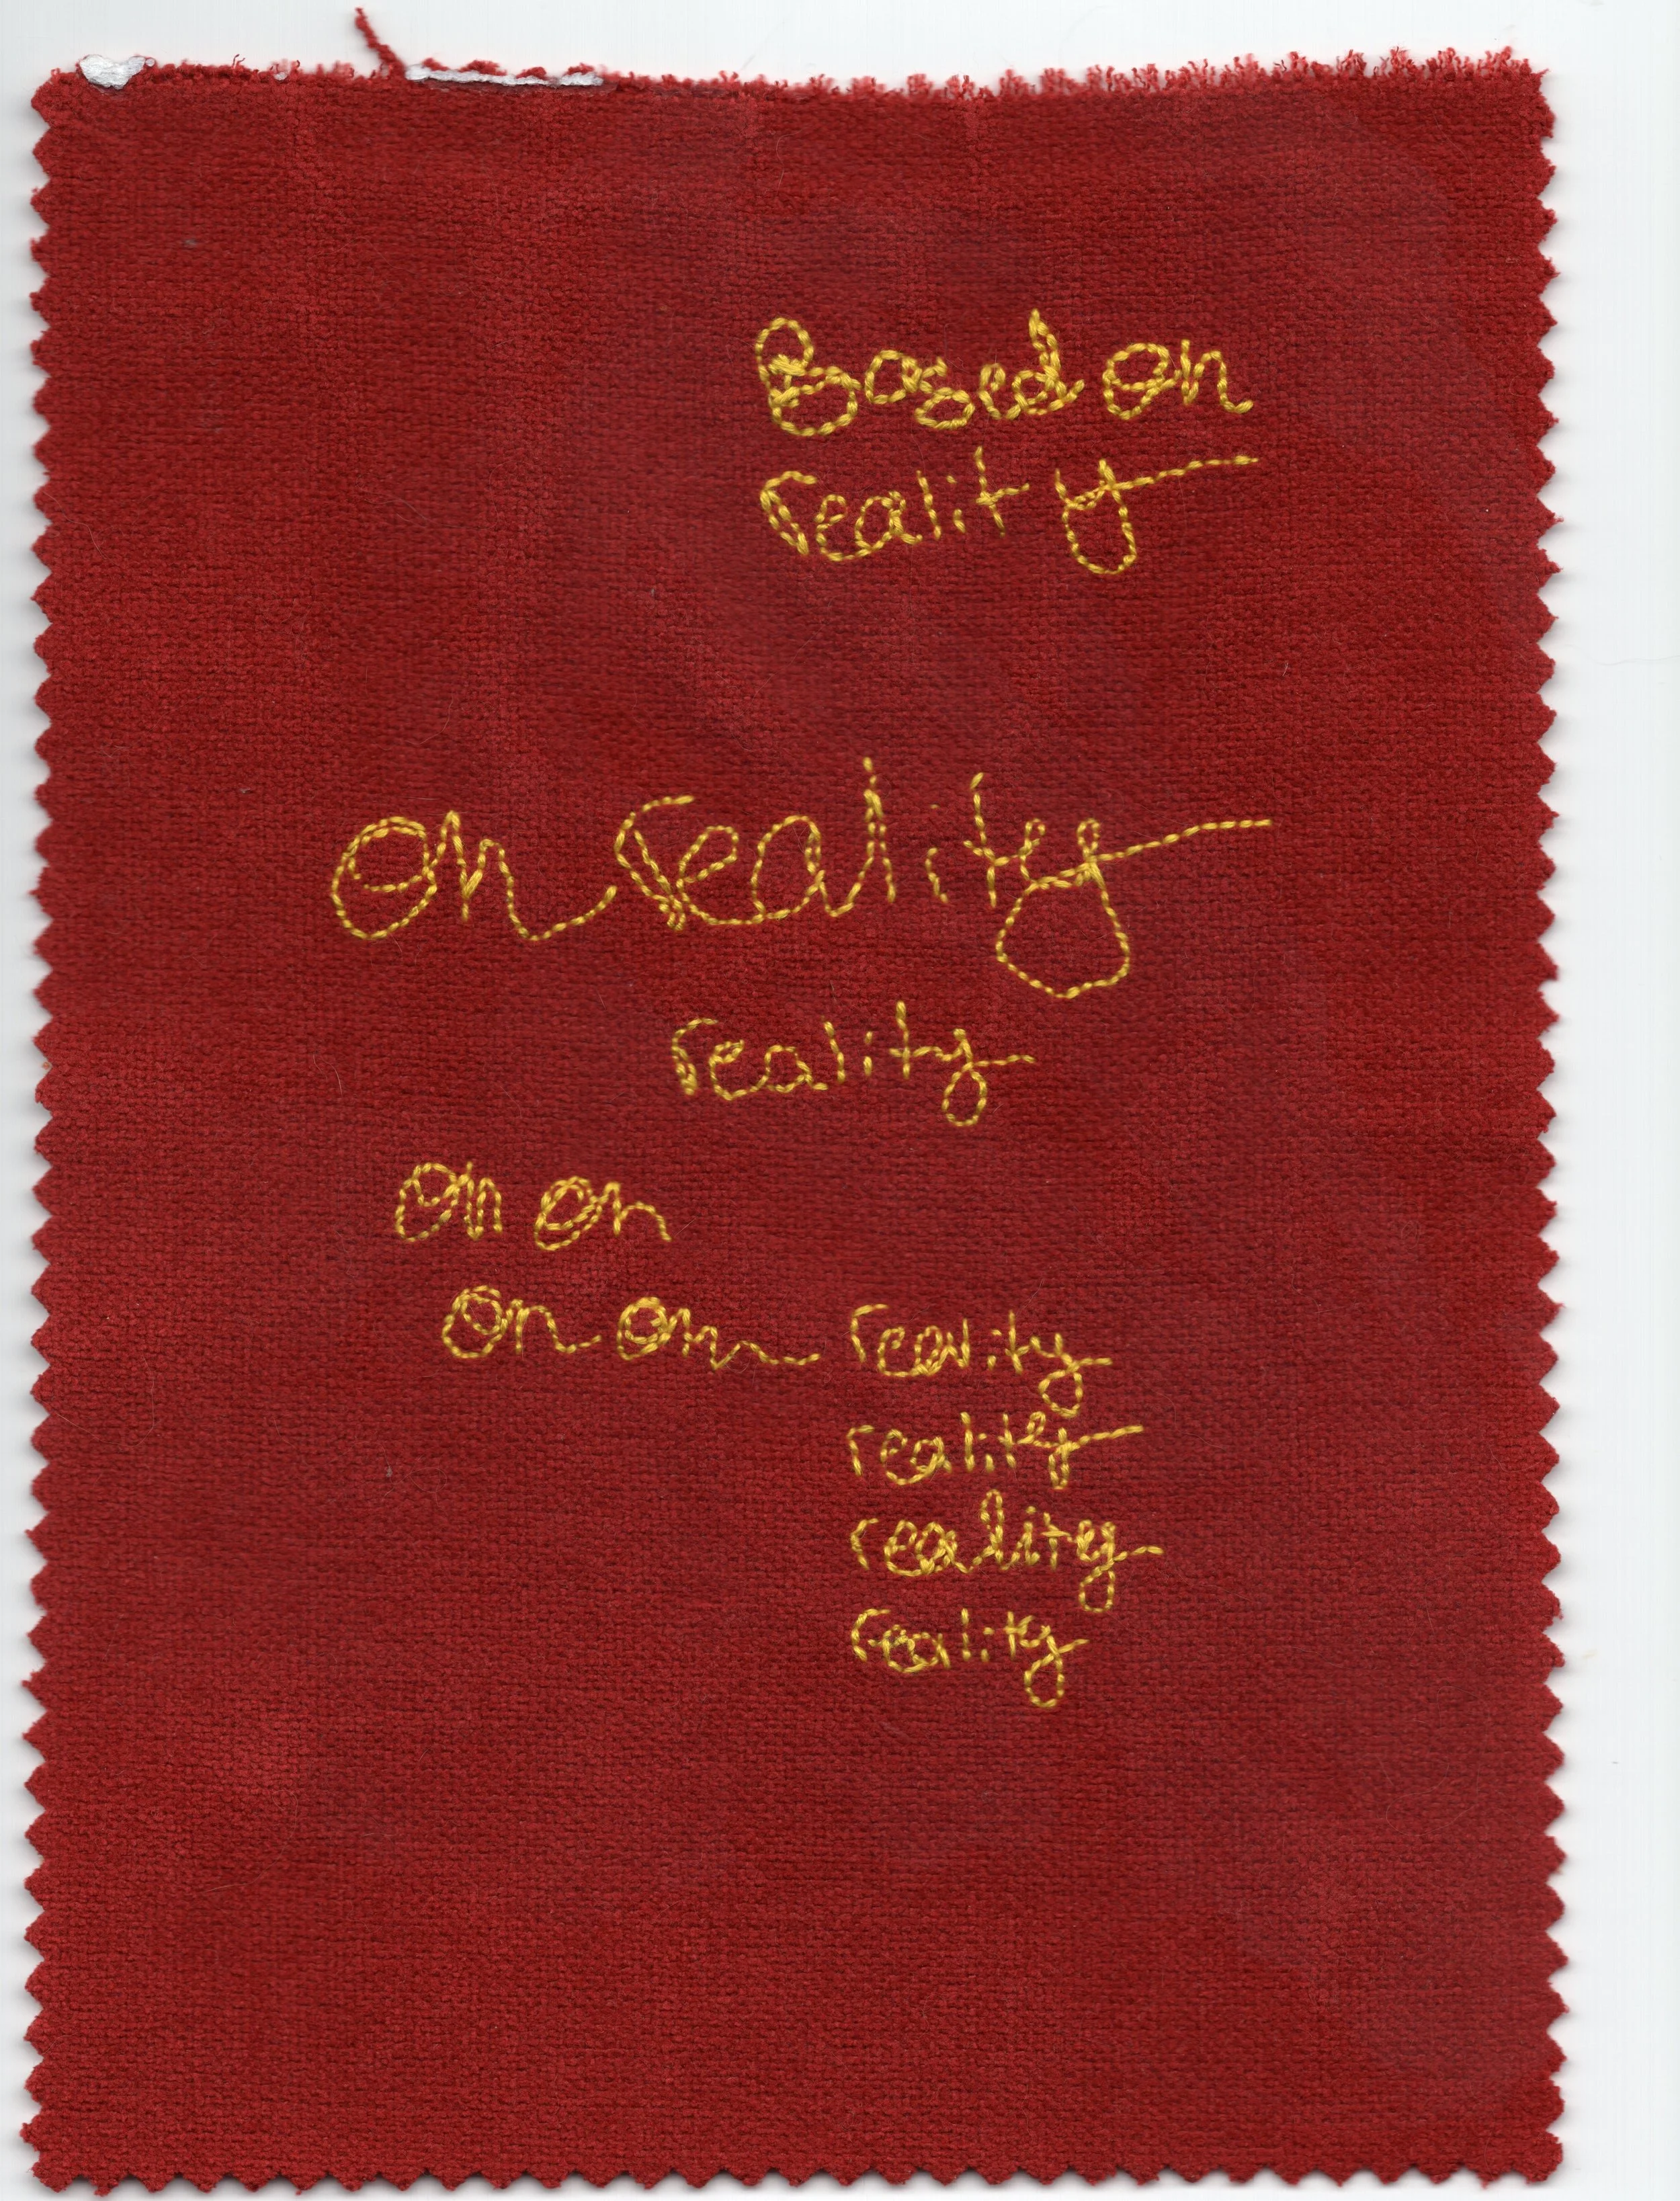 Based on
reality
on reality
reality
on on
on on reality
reality
reality
reality